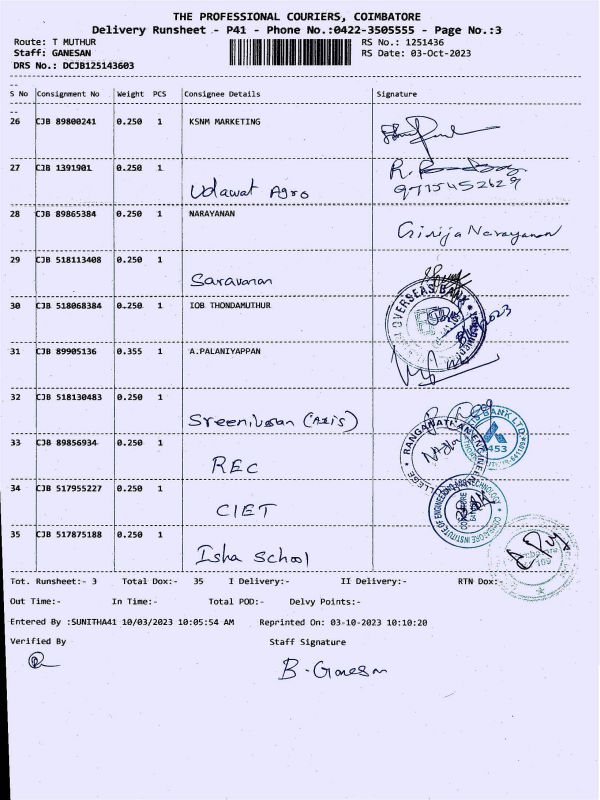 THE PROFESSIONAL COURIERS, COIMBATORE
Delivery Runsheet - P41 - Phone No.:0422-3505555 - Page No.:3
Route: T MUTHUR RS No.: 1251436
Staff: GANESAN RS Date: 03-Oct-2023
DRS No.: DCJB125143603
S No Consignment No Weight PCS Consignee Details Signature
26 CJB 89800241 0.250 1 KSNM MARKETING
27 CJB 1391901 0.250 1 Udawat Agro R.
9715452629
28 CJB 89865384 0.250 1 NARAYANAN Girija Narayanan
29 CJB 518113408 0.250 1 Saravanan
30 CJB 518068384 0.250 1 IOB THONDAMUTHUR OVERSEAS BANK
31 CJB 89905136 0.355 1 A.PALANIYAPPAN
32 CJB 518130483 0.250 1 Sreenivasan (Axis) BANK LTD.
453
33 CJB 89856934 0.250 1 REC RANGANATHAN ENGINEE
LLEGE
34 CJB 517955227 0.250 1 CIET COIMBATORE INSTITUTE OF ENGINEERING AND TECHNOLOGY
35 CJB 517875188 0.250 1 Isha School
109
Tot. Runsheet:- 3 Total Dox:- 35 I Delivery:- II Delivery:- RTN Dox:-
Out Time:- In Time:- Total POD:- Delvy Points:-
Entered By :SUNITHA41 10/03/2023 10:05:54 AM Reprinted On: 03-10-2023 10:10:20
Verified By Staff Signature
B. Ganesn